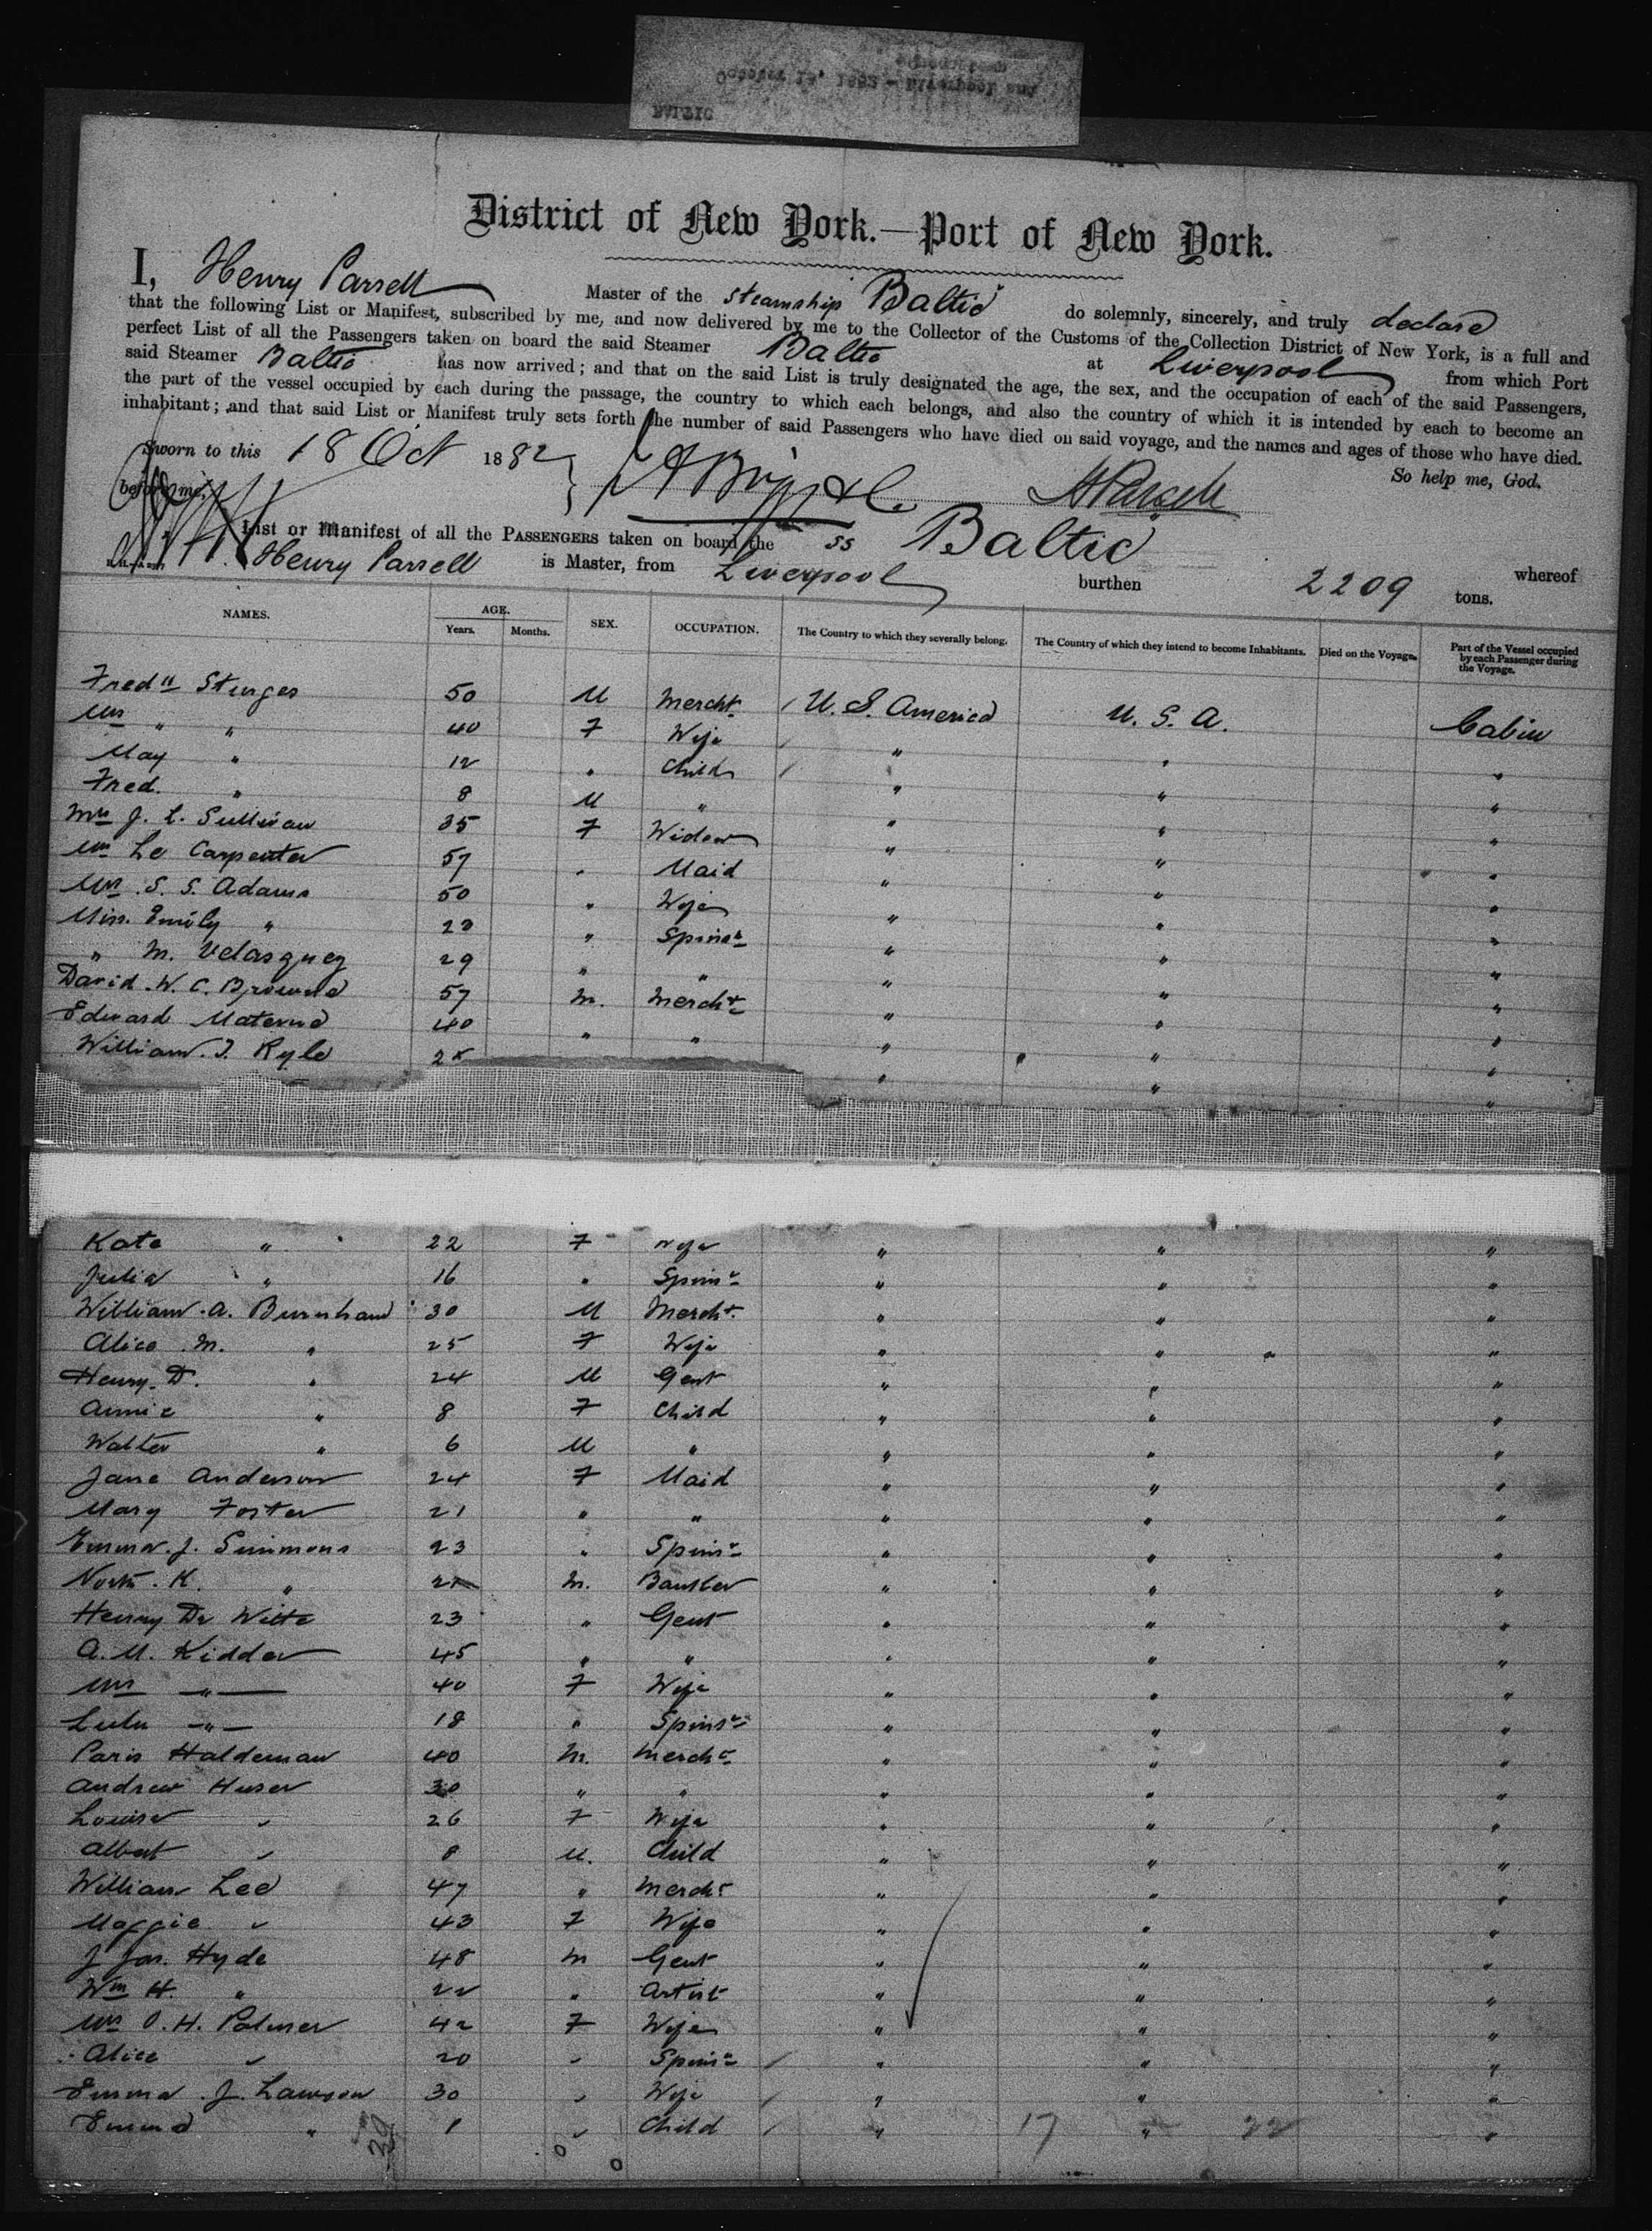 BALTIC
October 18, 1882 - Liverpool and
Queenstown
District of New York.—Port of New York.
I, Henry Parsell Master of the Steamship Baltic do solemnly, sincerely, and truly declare
that the following List or Manifest, subscribed by me, and now delivered by me to the Collector of the Customs of the Collection District of New York, is a full and
perfect List of all the Passengers taken on board the said Steamer Baltic at Liverpool from which Port
said Steamer Baltic has now arrived; and that on the said List is truly designated the age, the sex, and the occupation of each of the said Passengers,
the part of the vessel occupied by each during the passage, the country to which each belongs, and also the country of which it is intended by each to become an
inhabitant; and that said List or Manifest truly sets forth the number of said Passengers who have died on said voyage, and the names and ages of those who have died.
So help me, God.
Sworn to this 18 Oct 1882
before me, H Parsell
List or Manifest of all the PASSENGERS taken on board the SS Baltic whereof
Henry Parsell is Master, from Liverpool burthen 2209 tons.
NAMES. AGE. Years. Months. SEX. OCCUPATION. The Country to which they severally belong. The Country of which they intend to become Inhabitants. Died on the Voyage. Part of the Vessel occupied by each Passenger during the Voyage.
Fredk Sturges 50 M Mercht U. S. America U. S. A. Cabin
Mrs " " 40 F Wife " " "
May " 12 " Child " " "
Fred. " 8 M " " " "
Mrs J. L. Sullivan 35 F Widow " " "
Le Carpenter 57 " Maid " " "
Mrs S. S. Adams 50 " Wife " " "
Miss Emily " 23 " Spinsr " " "
" M. Velasquez 29 " " " " "
David W. C. Browne 57 M. Mercht " " "
Edward Materne 40 " " " " "
William J. Ryle 25 " " "
Kate " 22 F Wife " " "
Julia " 16 " Spinsr " " "
William A. Burnham 30 M Mercht " " "
Alice M. " 25 F Wife " " "
Henry D. " 24 M Gent " " "
Annie " 8 F Child " " "
Walter " 6 M " " " "
Jane Anderson 24 F Maid " " "
Mary Foster 21 " " " " "
Emma J. Simmons 23 " Spinsr " " "
K. " 21 M. Banker " " "
Henry De Witte 23 " Gent " " "
A. M. Kidder 45 " " " " "
Mrs " 40 F Wife " " "
Lulu " 18 " Spinsr " " "
Paris Haldeman 40 M. Mercht " " "
Andrew Huser 30 " " " " "
Louisa " 26 F Wife " " "
Albert " 8 M. Child " " "
William Lee 47 " Mercht " " "
Maggie " 43 F Wife " " "
J Jas. Hyde 48 M Gent " " "
Wm H. " 22 " Artist " " "
Mrs O. H. Palmer 42 F Wife " " "
Alice " 20 " Spinsr " " "
Emma J. Lawson 30 " Wife " " "
Emma " 1 " Child " " "
39 0 0 17 22